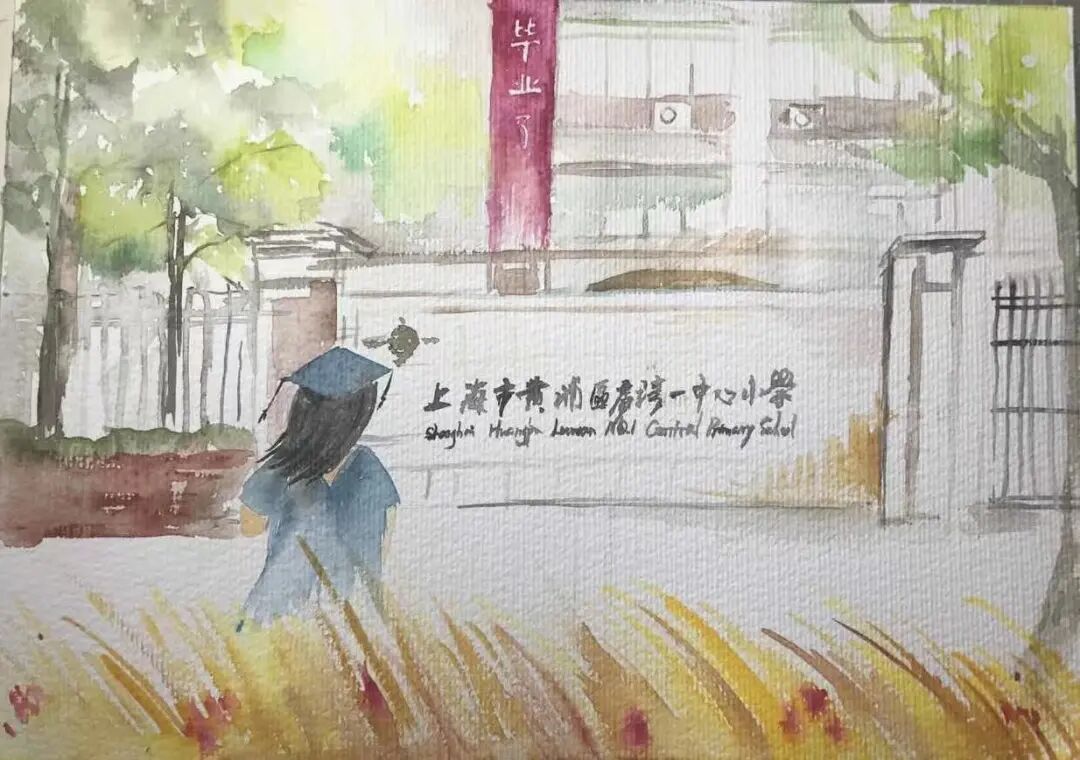 毕业了
上海市黄浦区卢湾一中心小学
Shanghai Huangpu Luwan NO.1 Central Primary School